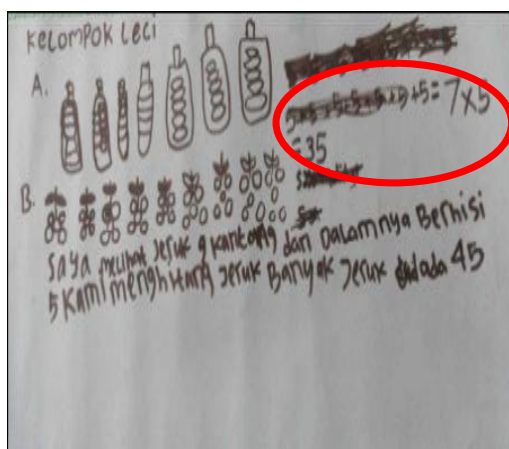 Kelompok Leci
A.
5+5+5+5+5+5+5= 7x5
=35
B.
saya melihat Jeruk 9 kantong dan Dalamnya Berhisi
5 Kami menghitang Jeruk Banyak Jeruk ada 45